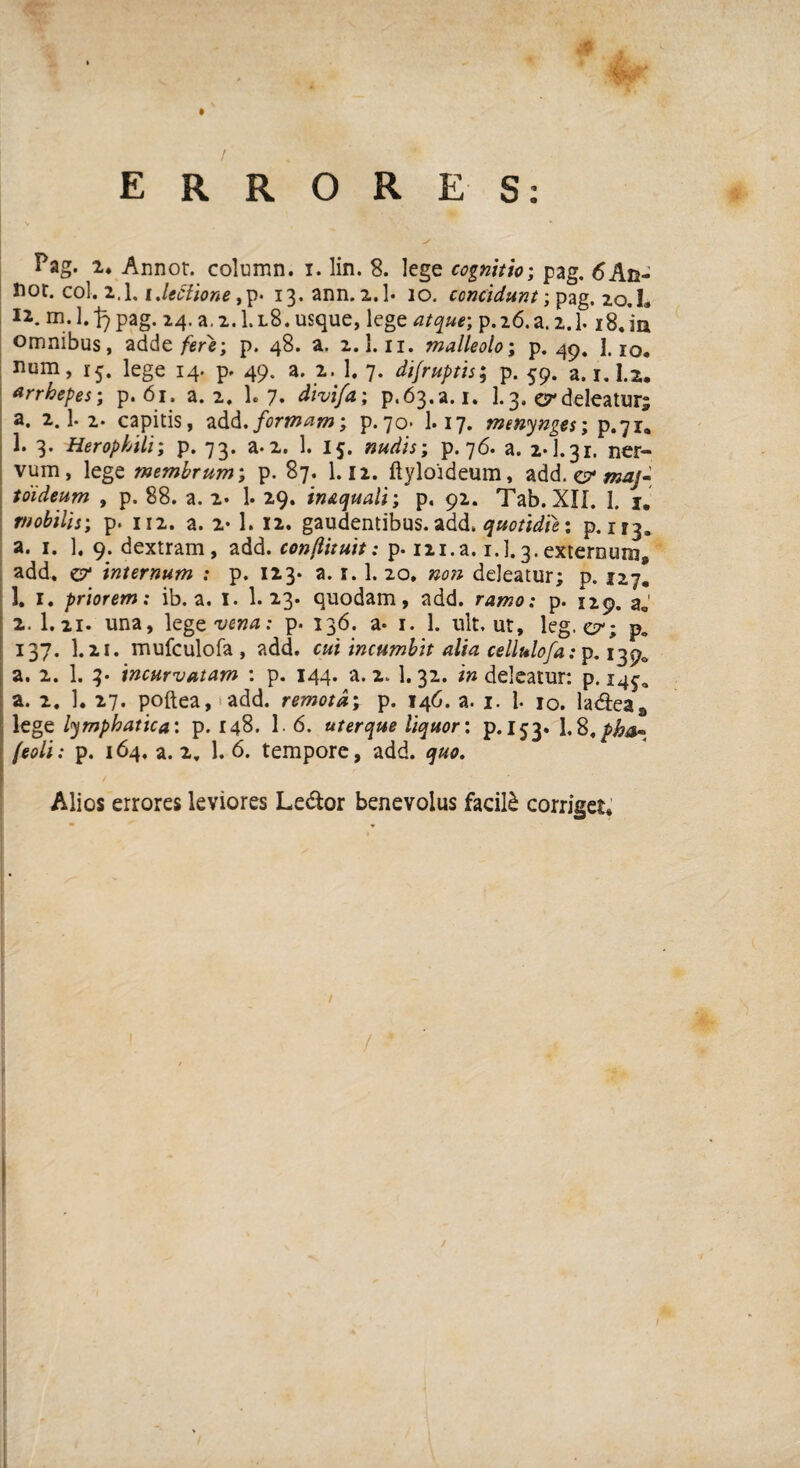 ERRORES:
Pag. 2. Annot. column. 1. lin. 8. lege cognitio; pag. 6 An-
not. col. 2. l. 1. lectione, p. 13. ann. 2. l. 10. concidunt; pag. 20. l.
12. m. l. ђ pag. 24. a. 2. l. 18. usque, lege atque; p. 26. a. 2. l. 18. in
omnibus, adde ferè; p. 48. a. 2. l. 11. malleolo; p. 49. l. 10.
num, 15. lege 14. p. 49. a. 2. l. 7. diſruptis; p. 59. a. 1. l. 2.
arrhepes; p. 61. a. 2. l. 7. diviſa; p. 63. a. 1. l. 3. & deleatur;
a. 2. l. 2. capitis, add. formam; p. 70. l. 17. menynges; p. 71.
l. 3. Herophili; p. 73. a. 2. l. 15. nudis; p. 76. a. 2. l. 31. ner-
vum, lege membrum; p. 87. l. 12. ſtyloïdeum, add. & maſ-
toïdeum, p. 88. a. 2. l. 29. inæquali; p. 92. Tab. XII. l. 1.
mobilis; p. 112. a. 2. l. 12. gaudentibus. add. quotidiè: p. 113.
a. 1. l. 9. dextram, add. conſtituit: p. 121. a. 1. l. 3. externum,
add. & internum: p. 123. a. 1. l. 20. non deleatur; p. 127.
l. 1. priorem: ib. a. 1. l. 23. quodam, add. ramo: p. 129. a.
2. l. 21. una, lege vena: p. 136. a. 1. l. ult. ut, leg. &; p.
137. l. 21. muſculoſa, add. cui incumbit alia celluloſa: p. 139.
a. 2. l. 3. incurvatam: p. 144. a. 2. l. 32. in deleatur: p. 145.
a. 2. l. 27. poſtea, add. remotâ; p. 146. a. 1. l. 10. lactea,
lege lymphatica: p. 148. l. 6. uterque liquor: p. 153. l. 8. pha-
ſeoli: p. 164. a. 2. l. 6. tempore, add. quo.
Alios errores leviores Lector benevolus facilè corriget.